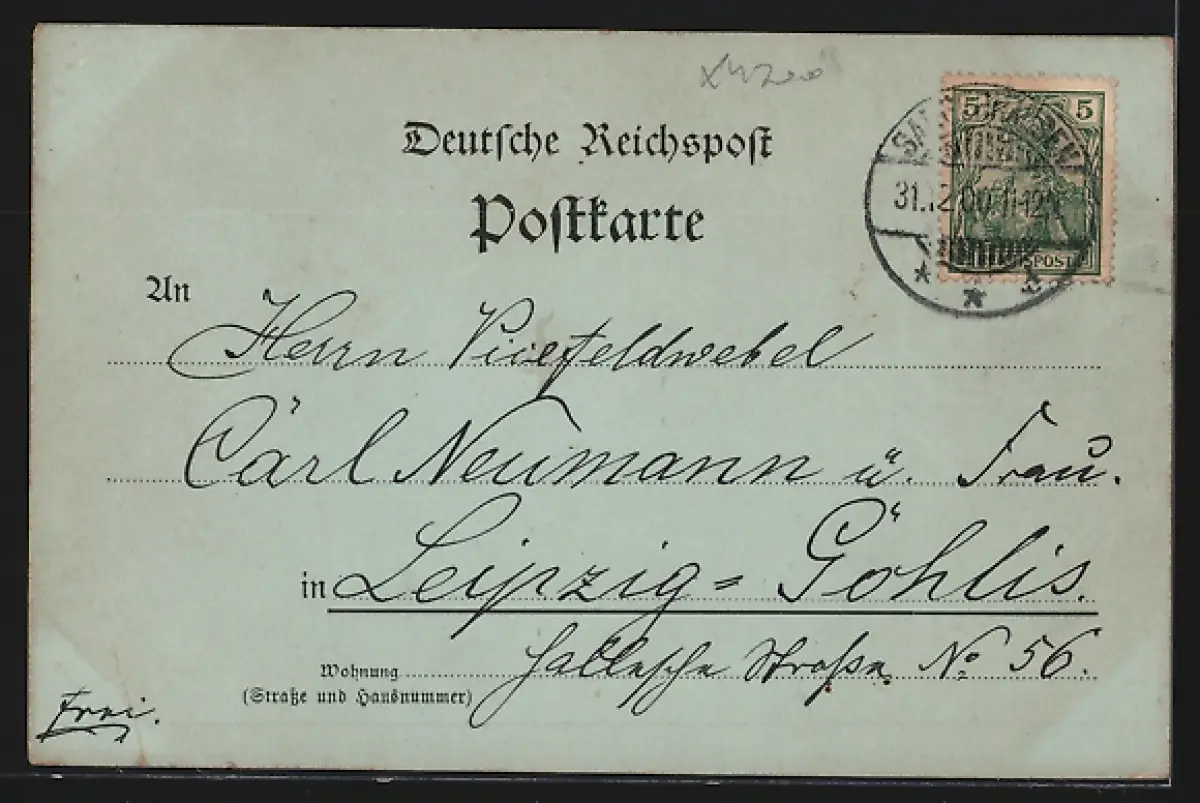 5 5
31.12.00.11-12
Deutsche Reichspost
POST
Postkarte
An
Herrn Vicefeldwebel
Carl Neumann u. Frau.
in Leipzig=Göhlis.
Wohnung Hallesche Straße No 56.
(Straße und Hausnummer)
Frei.